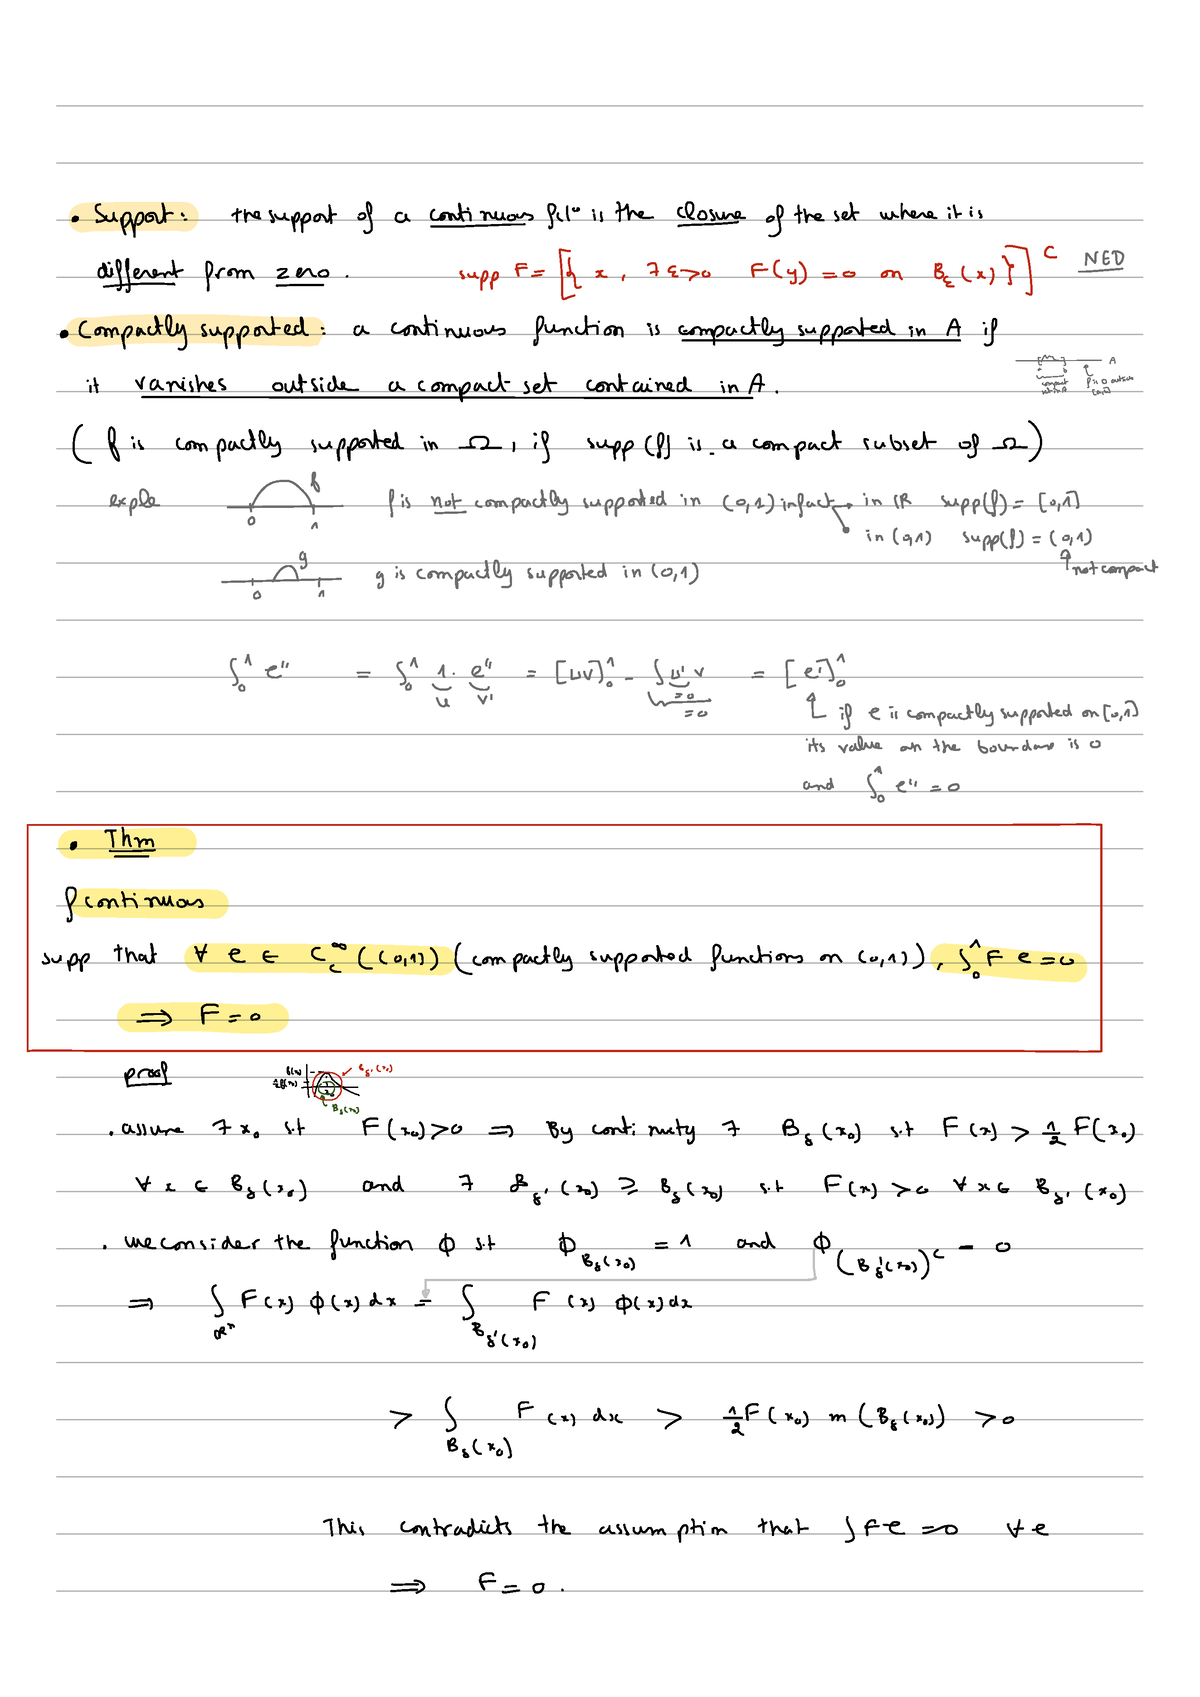 • Support: the support of a continuous fct° is the closure of the set where it is
different from zero. supp F = [{ x, ∃ ε>0 F(y) = 0 on Bε(x) }]^C NED
• Compactly supported: a continuous function is compactly supported in A if
it vanishes outside a compact set contained in A.
A
f is 0 outside
( f is compactly supported in Ω, if supp(f) is a compact subset of Ω )
exple f f is not compactly supported in (0,1) in fact → in IR supp(f) = [0,1]
0 1 in (0,1) supp(f) = (0,1)
g g is compactly supported in (0,1) not compact
0 1
∫₀¹ e'' = ∫₀¹ 1 · e'' = [uv]₀¹ - ∫ u' v = [e']₀¹
u v' =0
=0 if e is compactly supported on [0,1]
its value on the boundary is 0
and ∫₀¹ e'' = 0
• Thm
f continuous
supp that ∀ e ∈ C_c^∞((0,1)) (compactly supported functions on (0,1)), ∫₀¹ F e = 0
⇒ F = 0
proof
f(x₀) B_δ'(x₀)
½f(x₀) B_δ(x₀)
. assume ∃ x₀ s.t F(x₀) > 0 ⇒ By continuity ∃ B_δ(x₀) s.t F(x) > ½ F(x₀)
∀ x ∈ B_δ(x₀) and ∃ B_δ'(x₀) ⊇ B_δ(x₀) s.t F(x) > 0 ∀ x ∈ B_δ'(x₀)
. we consider the function ϕ s.t ϕ_{B_δ(x₀)} = 1 and ϕ_{(B_δ'(x₀))^c} = 0
⇒ ∫_{IR^n} F(x) ϕ(x) dx = ∫_{B_δ'(x₀)} F(x) ϕ(x) dx
> ∫_{B_δ(x₀)} F(x) dx > ½ F(x₀) m(B_δ(x₀)) > 0
This contradicts the assumption that ∫ F e = 0 ∀ e
⇒ F = 0 .